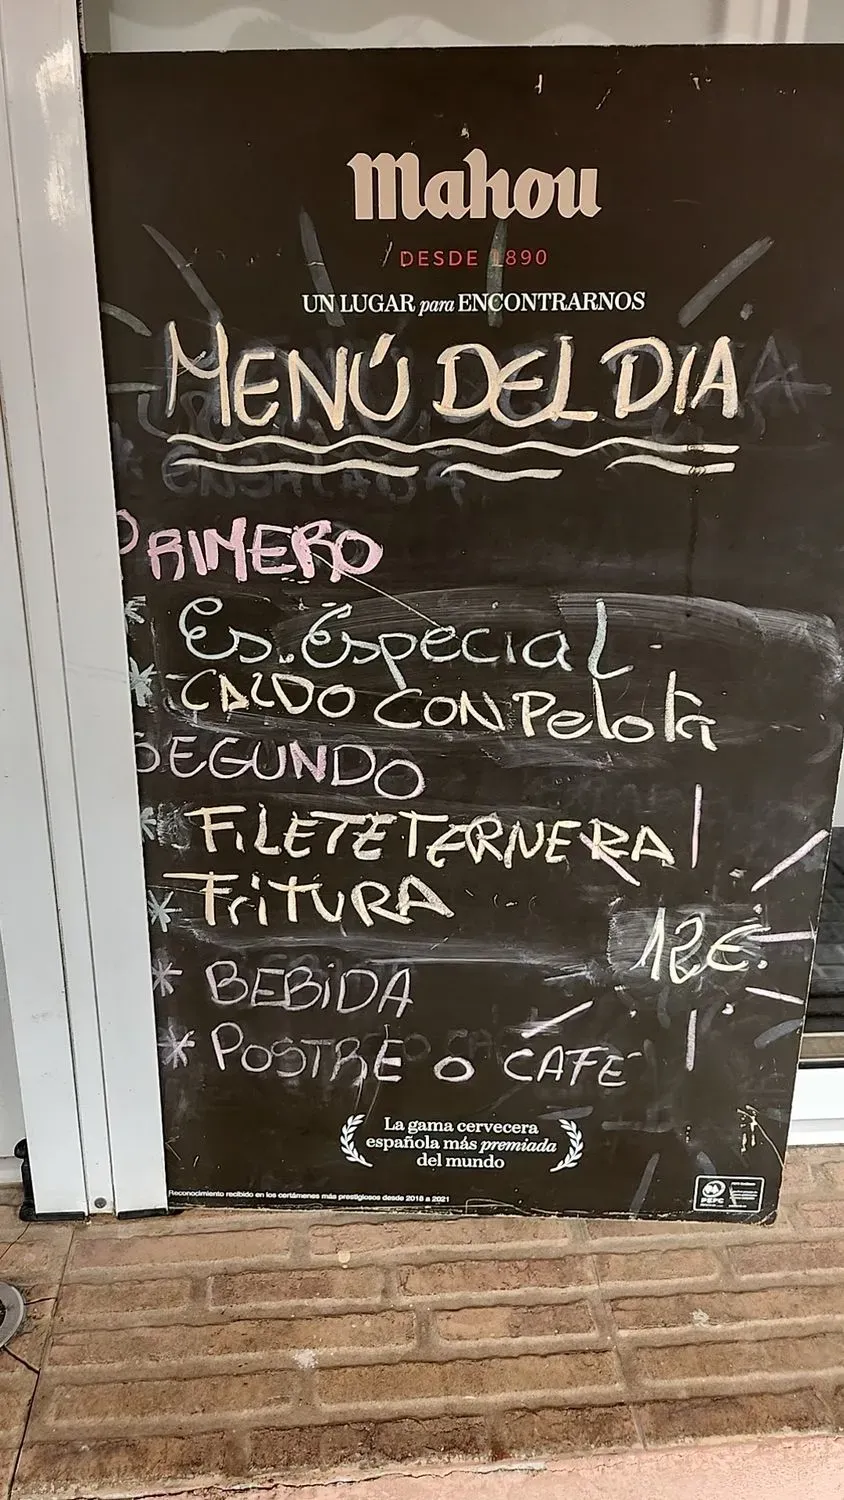 Mahou
DESDE 1890
UN LUGAR para ENCONTRARNOS
MENÚ DEL DIA
PRIMERO
* Es. Especial.
* CALDO CON Pelota
SEGUNDO
* FILETE TERNERA
* FRITURA
12€.
* BEBIDA
* POSTRE O CAFE
La gama cervecera
española más premiada
del mundo
Reconocimiento recibido en los certámenes más prestigiosos desde 2018 a 2021
PEFC